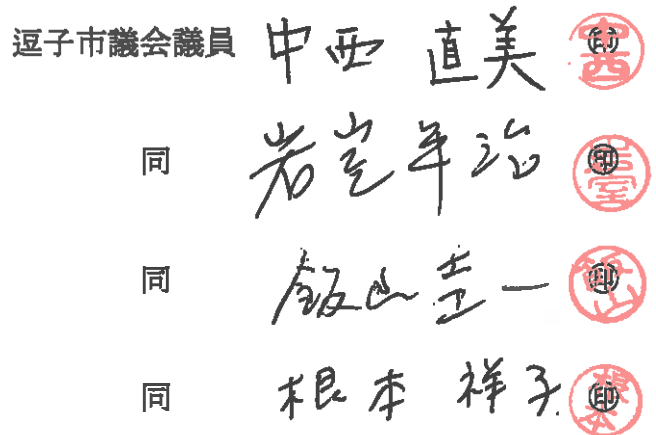 逗子市議会議員 中西 直美 ㊞
同 岩室年治 ㊞
同 飯山圭一 ㊞
同 根本 祥子 ㊞